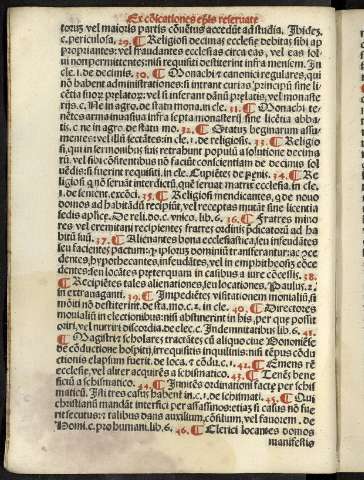 Excōicationes ep̄is reseruate
torum vel maioris partis cōuētus accedūt ad studia. Ibidez.
c. periculosa. 29. ¶ Religiosi decimas ecclesie debitas sibi ap
propriantes: vel fraudantes ecclesias circa eas, vel eas sol
ui non permittentes: nisi requisiti destiterint infra mensem. In
cle. 1. de decimis. 30. ¶ Monachi et canonici regulares, qui
nō habent administrationes: si intrant curias principū sine li
cētia suorū prelatorum: vel si inferant dānū prelatis, vel monaste
rijs. c. Ne in agro. de statu mona. in cle. 31. ¶ Monachi te-
netes arma inuasiua infra septa monasterij sine licētia abba-
tis. c. ne in agro. de statu mo. 32. ¶ Statum beginarum assu-
mentes: vel illū sectātes: in cle. 1. de religiosis. 33. ¶ Religio
si, qui in sermonibus suis retrahunt populū a solutione decima
rū. vel sibi cōfitentibus nō faciūt conscientiam de decimis sol
uēdis: si fuerint requisiti. in cle. Cupiētes de penis. 34. ¶ Re
ligiosi quando nō seruāt interdictū, quē seruat matrix ecclesia. in cle.
1. de sentent. excōi. 35. ¶ Religiosi mendicantes, qui de nouo
domos ad habitādū recipiūt, vel receptas mutāt sine licentia
sedis aplice. De reli. do. c. vnico. lib. 6. 36. ¶ Fratres mino
res vel eremitani recipientes fratres ordinis predicatorum ad ha
bitū suū. 37. ¶ Alienantes bona ecclesiastica, seu infeudātes
seu facientes pactum: vt ipsorum dominium transferantur: ac ven
dentes, hypothecantes, infeudātes, vel in emphitheosim cōce
dentes: seu locātes preterquam in casibus a iure cōcessis. 38.
¶ Recipiētes tales alienationes, seu locationes. Paulus. 2.
in extrauaganti. 39. ¶ Impediētes visitationem monialiū, si
moniti nō destiterint. de sta. mo. c. 1. in cle. 40. ¶ Directores
monialiū in electionibus: nisi abstinerint in his, per que possit
oriri, vel nutriri discordia. de elec. c. Indemnitatibus lib. 6. 41.
¶ Magistri et scholares tractātes cū aliquo ciue Bononiēse
de cōductione hospitij, irrequisitis inquilinis: nisi tēpus cōdu
ctionis elapsum fuerit. de loca. et cōdu. c. 1. 42. ¶ Emens rē
ecclesie, vel aliter acquirēs a schismatico. 43. ¶ Tenēs bene
ficiū a schismatico. 44. ¶ Inuitēs ordinationi facte per schis
maticū. Isti tres casus habent in. c. 1. de schismati. 45. ¶ Qui
christianū mandāt interfici per assassinos: etiam si casus nō fue
rit secutus: et talibus dans auxilium, consilium, vel fauorem. de
homi. c. pro humani. lib. 6. 46. ¶ Clerici locantes domos
manifestis